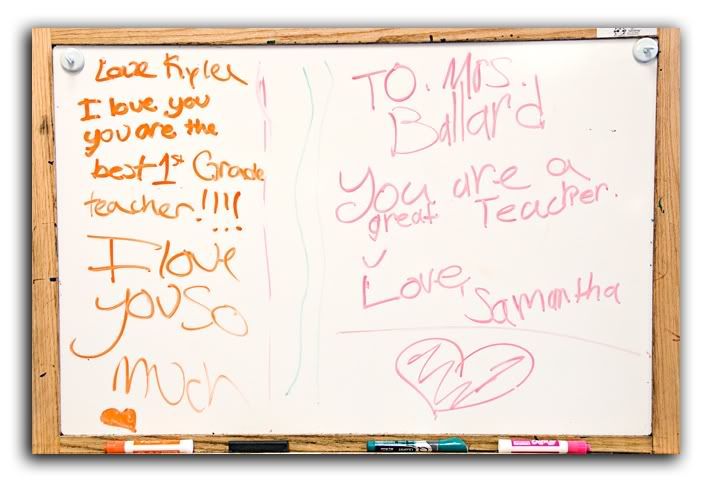 Love Kyler
I love you
you are the
best 1st Grade
teacher!!!!
I love
you So
much
TO. Mrs.
Ballard
You are a
great Teacher.
Love,
Samantha